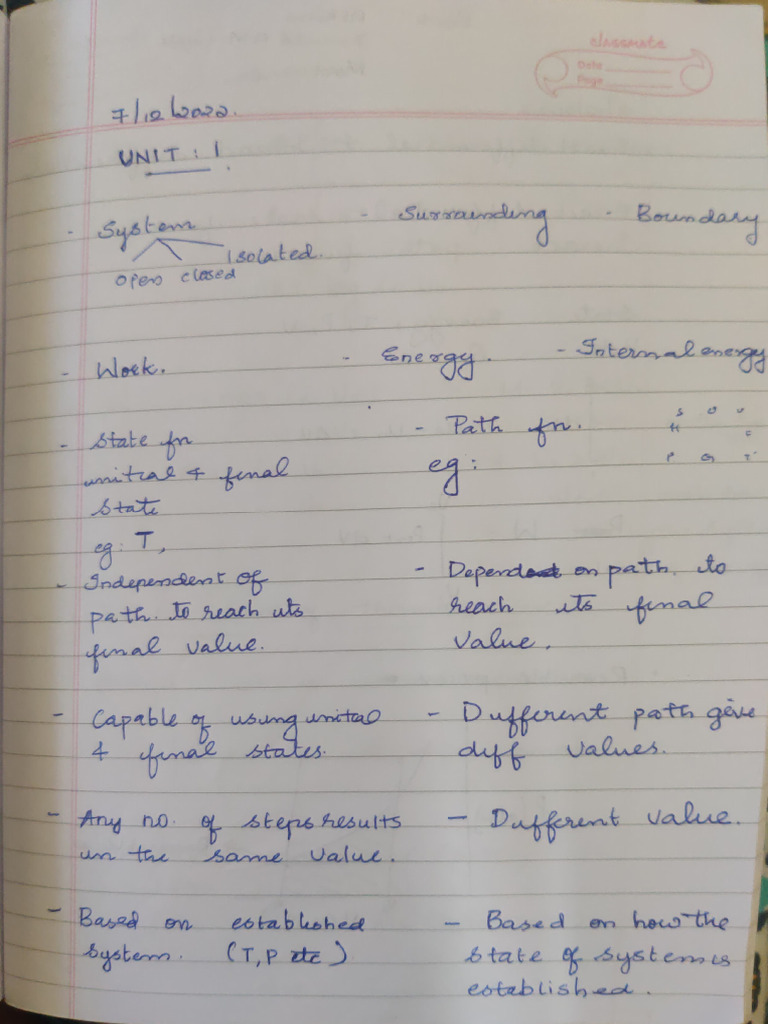 classmate
Date
Page
7/12/2022.
UNIT : 1.
- System - Surrounding - Boundary
open closed Isolated.
- Work. - Energy. - Internal energy
- State fn - Path fn.
initial & final eg:
state
eg: T,
S U V
H
P G T
- Independent of - Depend on path. to
path. to reach its reach its final
final value. value.
- Capable of using initial - Different path give
& final states. diff values.
- Any no. of steps results - Different value.
in the same value.
- Based on established - Based on how the
system. (T, P etc) state of system is
established.